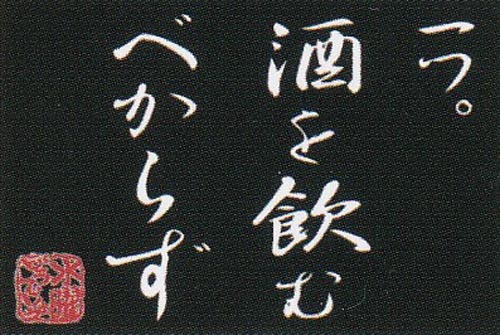 一つ。
酒を飲む
べからず